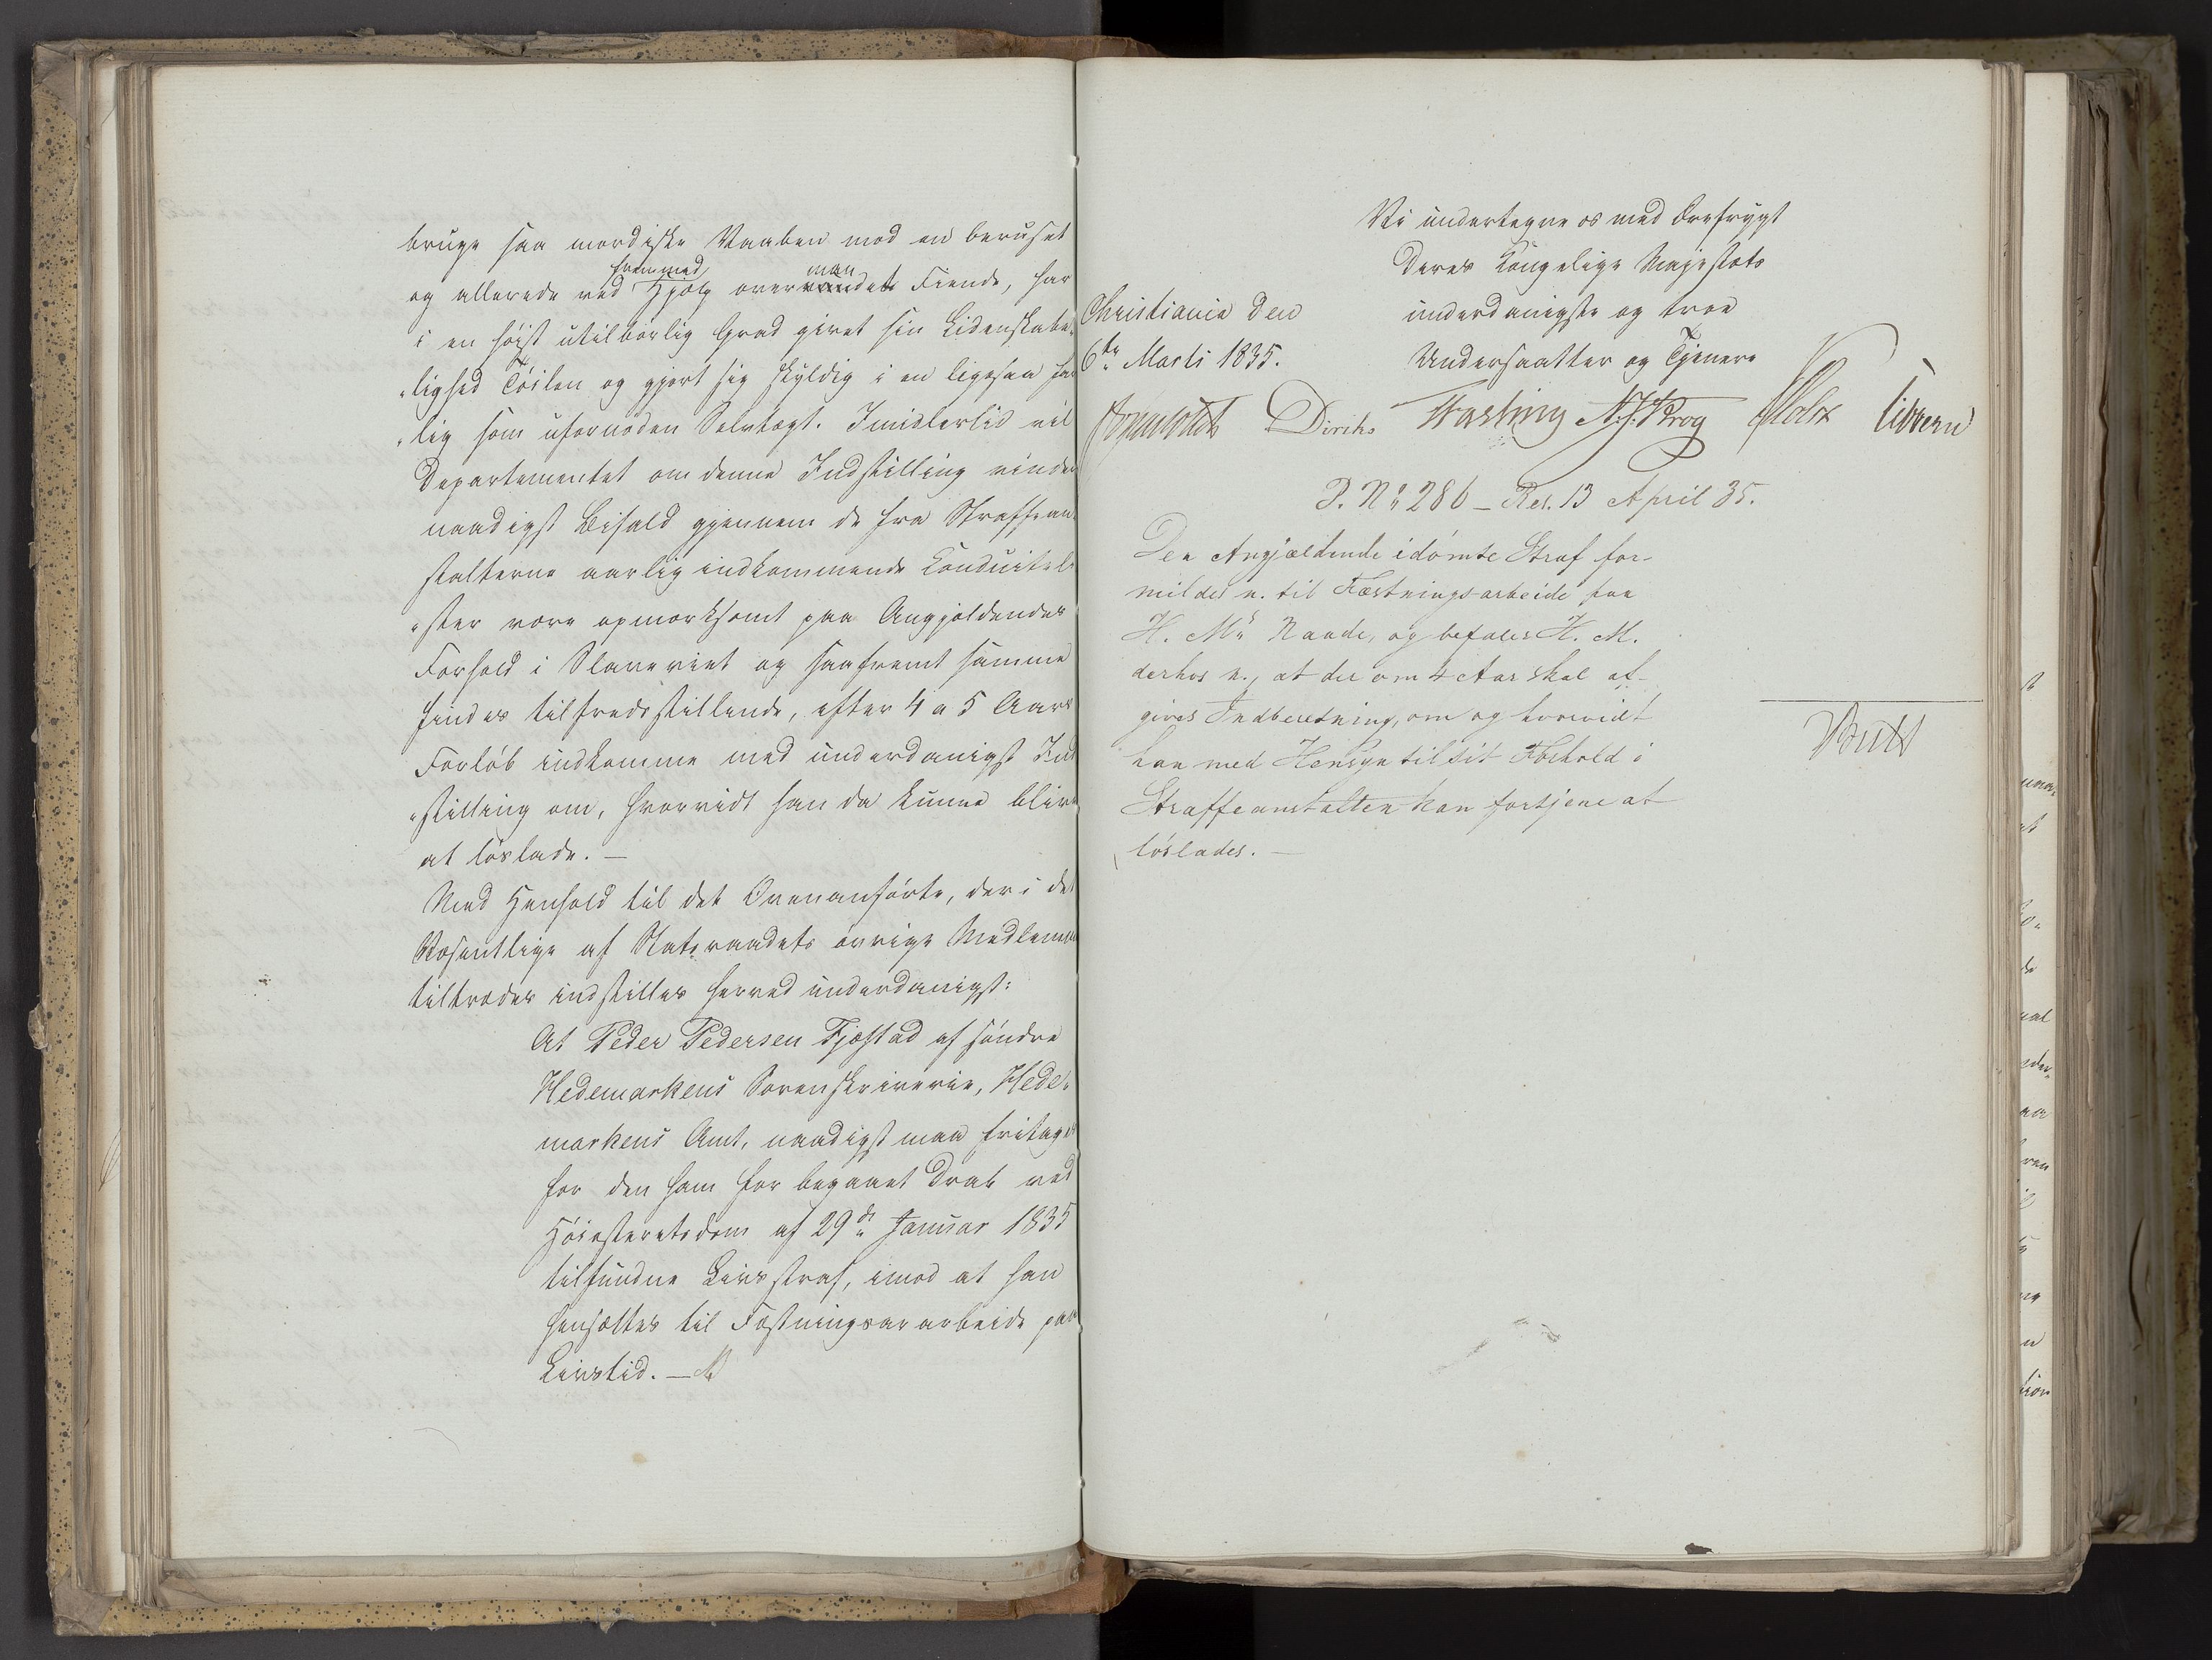 bruge saa mordiske Vaaben mod en beruset
fremmed man
og allerede ved Hjælp overvundet Fiende, har
i en høist utilbørlig Grad givet sin Lidenskabe„
„lighed Tøilen og gjort sig skyldig i en ligesaa far
„lig som ufornøden Selvtægt. Imidlertid vil
Departementet om denne Indstilling vinder
naadigst Bifald gjennem de fra Straffean„
stalterne aarlig indkommende Conduitel
„ster være opmærksomt paa Angjældendes
Forhold i Slaveriet og saafremt samme
findes tilfredsstillende, efter 4 a 5 Aars
Forløb indkomme med underdanigst Ind
„stilling om, hvorvidt han da kunne blive
at løslade. —
Med Henhold til det Ovenanførte, der i det
Væsentlige af Statsraadets øvrige Medlemmer
tiltrædes indstilles herved underdanigst:
At Peder Pedersen Fjæstad af søndre
Hedemarkens Sorenskriverie, Hede„
markens Amt, naadigst maa fritages
for den ham for begaaet Drab ved
Høiesteretsdom af 29de Januar 1835
tilfundne Livsstraf, imod at han
hensættes til Fæstningsarbeide paa
Livstid. —
Vi undertegne os med Ærefrygt
Deres Kongelige Majestæts
underdanigste og troe
Undersaatter og Tjenere
Christiania den
6te Marts 1835.
Diriks Fasting N. J. Krog Holst Vibe
P. No 286 — Res. 13 April 35.
Den Angjældende idømte Straf for-
mildes n. til Fæstningsarbeide paa
H. Ms Naade, og befales H. M.
derhos n., at der om 4 Aar skal af-
gives Indberetning, om og hvorvidt
han med Hensyn til sit Forhold i
Straffeanstalten kan fortjene at
løslades. —